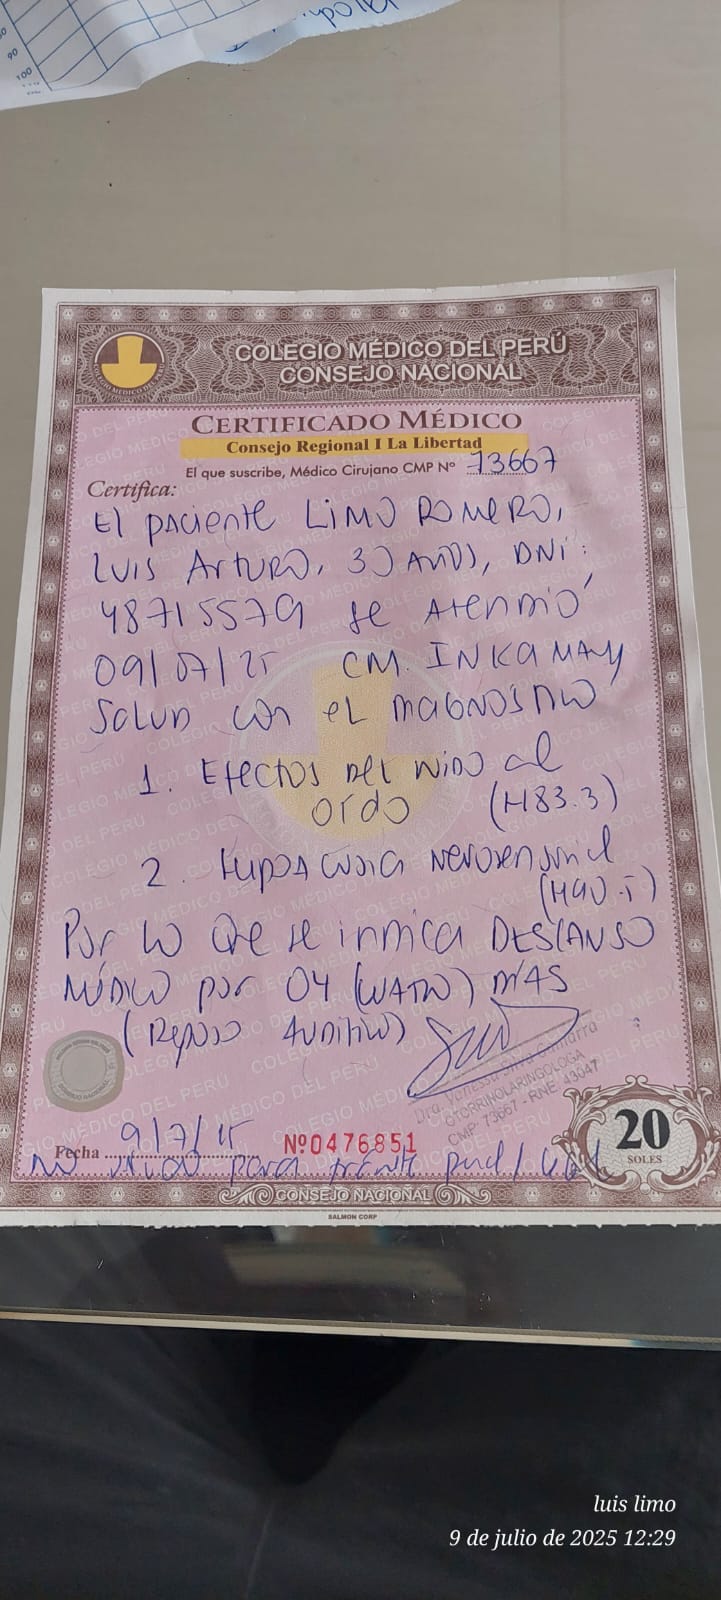 90
100
COLEGIO MÉDICO DEL PERÚ
CONSEJO NACIONAL
CERTIFICADO MÉDICO
Consejo Regional I La Libertad
El que suscribe, Médico Cirujano CMP Nº 73667
Certifica:
El paciente LIMO ROMERO,
LUIS ARTURO, 30 AÑOS, DNI:
48715579 se Atendió
09/07/25 CM. INKA MAY
SALUD con el DIAGNOSTICO
1. Efectos del ruido al
oído (H83.3)
2. Hipoacusia neurosensorial
(H90.5)
Por lo que se indica DESCANSO
MÉDICO por 04 (CUATRO) DÍAS
(Reposo Auditivo)
Dra. Venessa Silva
OTORRINOLARINGOLOGA
CMP: 73667 - RNE. 43047
Fecha 9/7/25 Nº 0476851
20
SOLES
No válido para trámite
CONSEJO NACIONAL
SALMON CORP
luis limo
9 de julio de 2025 12:29